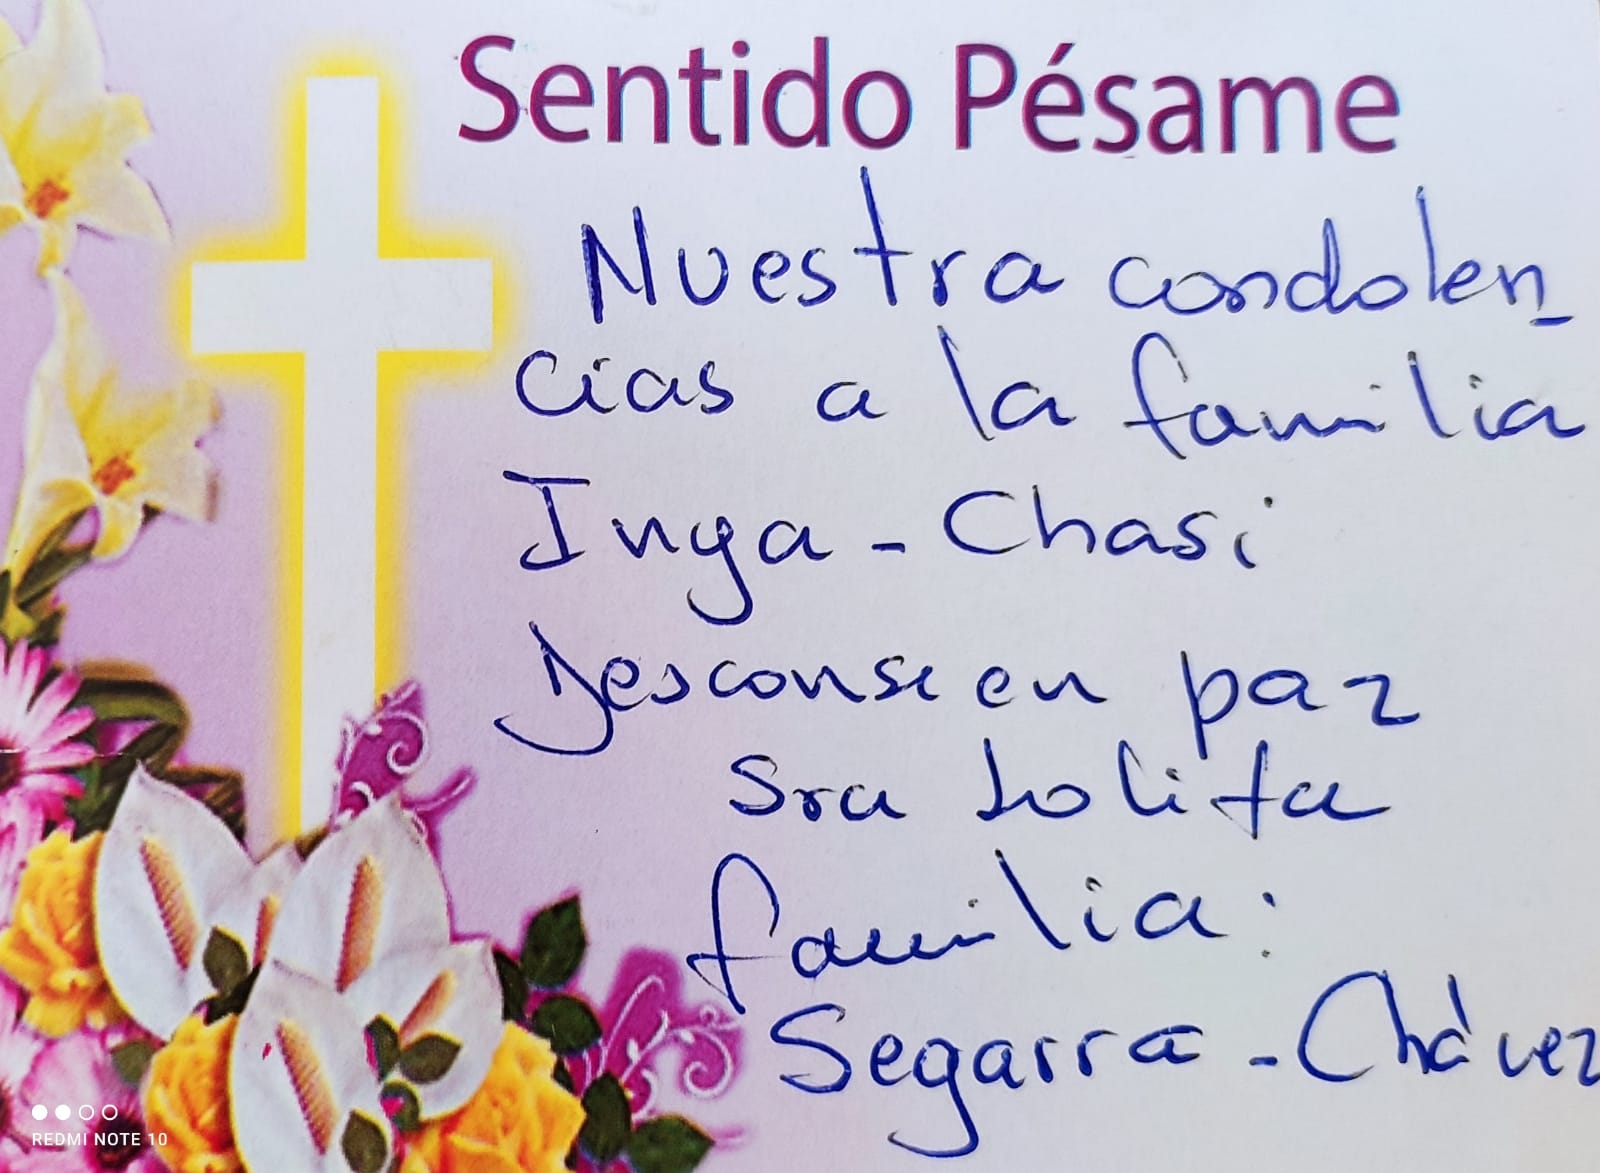 Sentido Pésame
Nuestra condolen-
cias a la familia
Inga - Chasi
Desconse en paz
Sra Lolita
familia:
Segarra - Chávez
REDMI NOTE 10